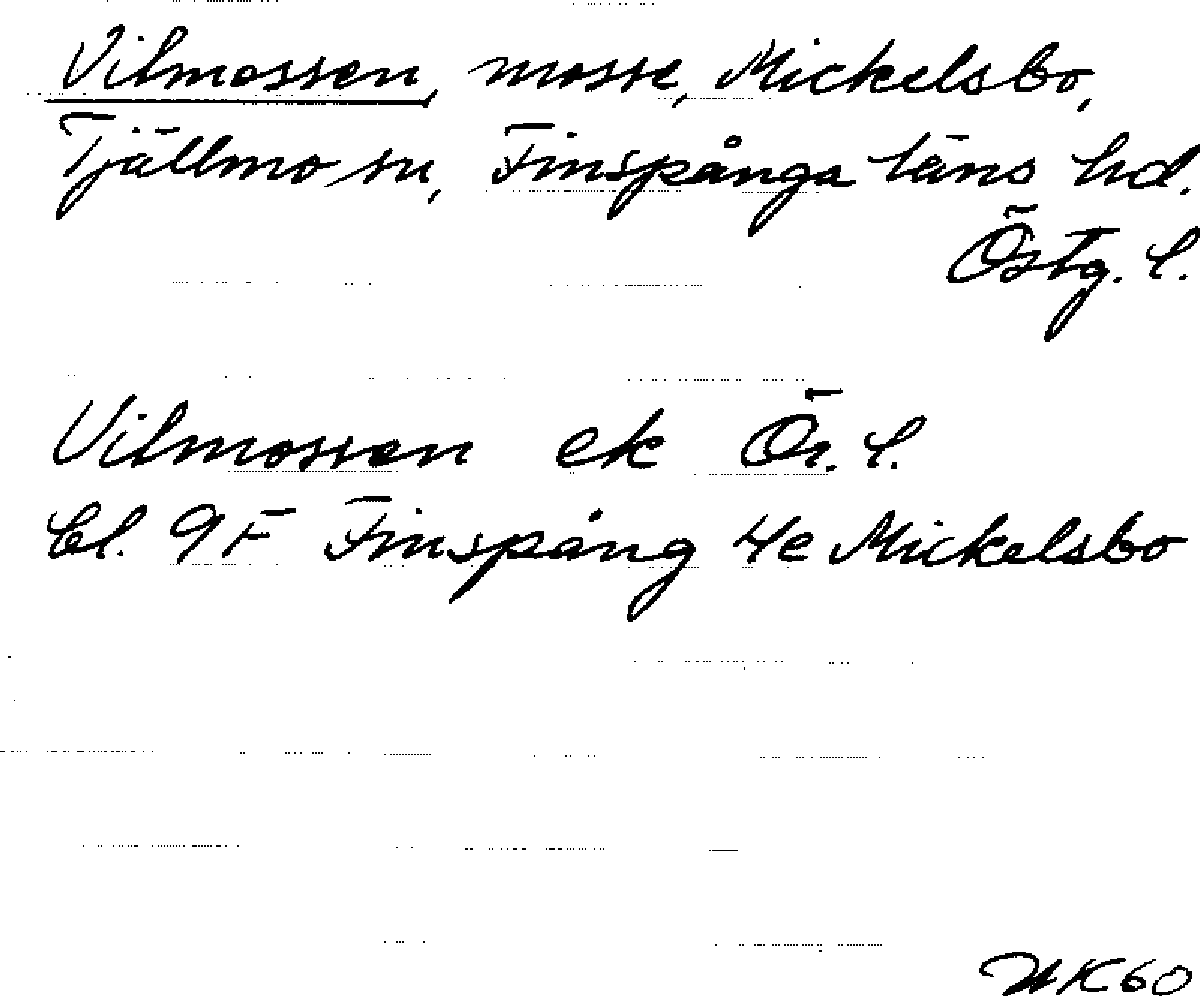 Vilmossen, mosse, Mickelsbo,
Tjällmo sn, Finspånga läns hd.
Östg. l.
Vilmossen ek Ör. l.
bl. 9F Finspång 4e Mickelsbo